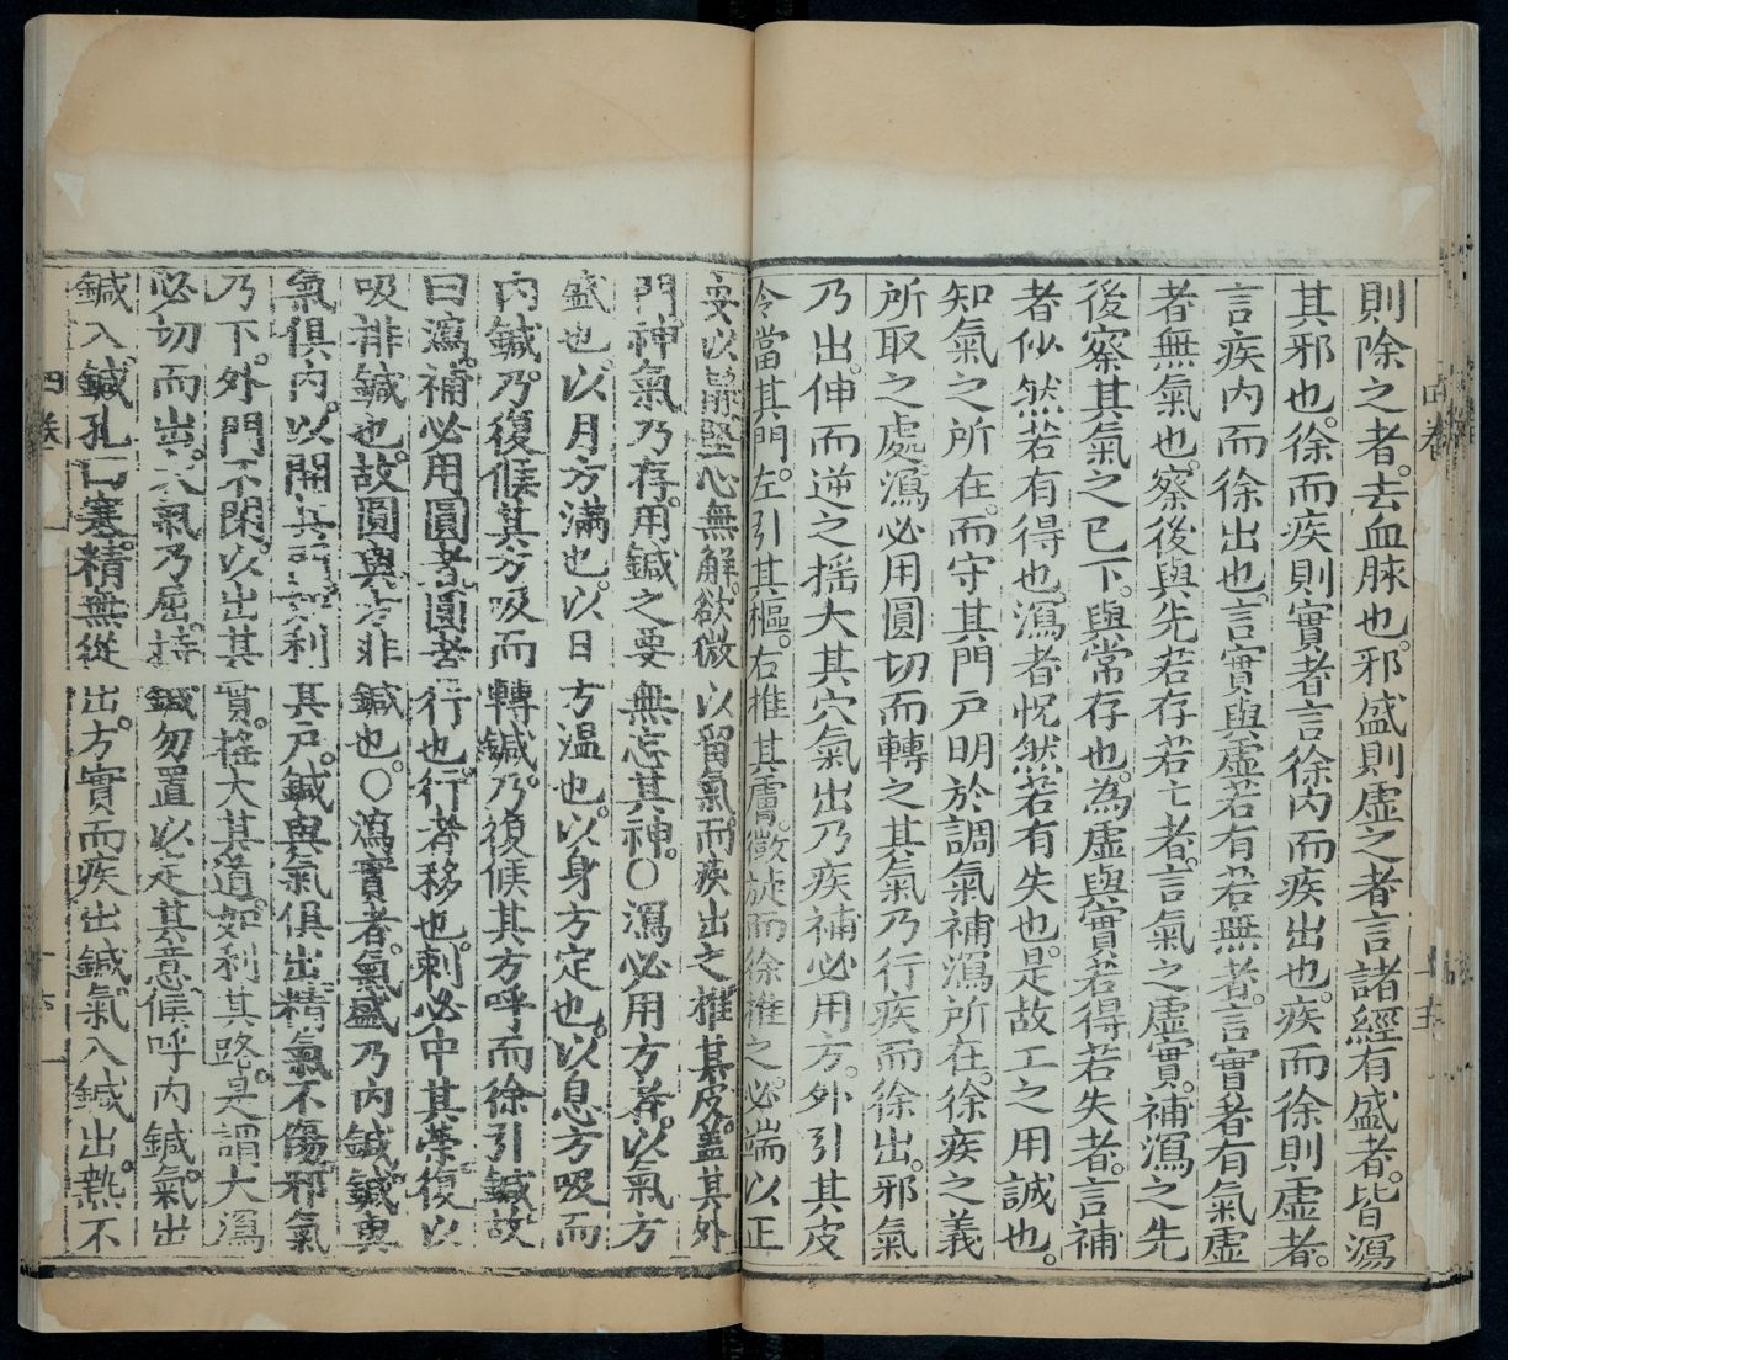 則除之者。去血脉也。邪盛則虛之者言諸經有盛者。皆瀉
其邪也。徐而疾則實者言徐內而疾出也。疾而徐則虛者。
言疾內而徐出也。言實與虛若有若無者。言實者有氣虛
者無氣也。察後與先若存若亡者。言氣之虛實。補瀉之先
後察其氣之已下。與常存也。為虛與實若得若失者。言補
者佖然若有得也。瀉者怳然若有失也。是故工之用誠也。
知氣之所在。而守其門戶明於調氣補瀉所在。徐疾之義
所取之處瀉必用圓切而轉之其氣乃行疾而徐出。邪氣
乃出。伸而逆之揺大其穴氣出乃疾補必用方。外引其皮
令當其門。左引其樞。右推其膚。微旋而徐推之。必端以正
安以靜堅心無解。欲微以留氣。而疾出之推其皮。蓋其外
門。神氣乃存。用鍼之要無忘其神。○瀉必用方者。以氣方
盛也。以月方滿也。以日方温也。以身方定也。以息方吸而
內鍼。乃復候其方吸而轉鍼。乃復候其方呼而徐引鍼故
曰瀉。補必用圓者圓者行也。行者移也。刺必中其榮復以
吸排鍼也。故圓與方非鍼也。○瀉實者。氣盛乃內鍼鍼與
氣俱內。以開其門如利其戶。鍼與氣俱出。精氣不傷邪氣
乃下。外門不閉。以出其實。揺大其道。如利其路。是謂大瀉
必切而出。大氣乃屈。持鍼勿置以定其意候呼內鍼。氣出
鍼入。鍼孔四塞。精無從出。方實而疾出鍼。氣入鍼出。熱不
四卷